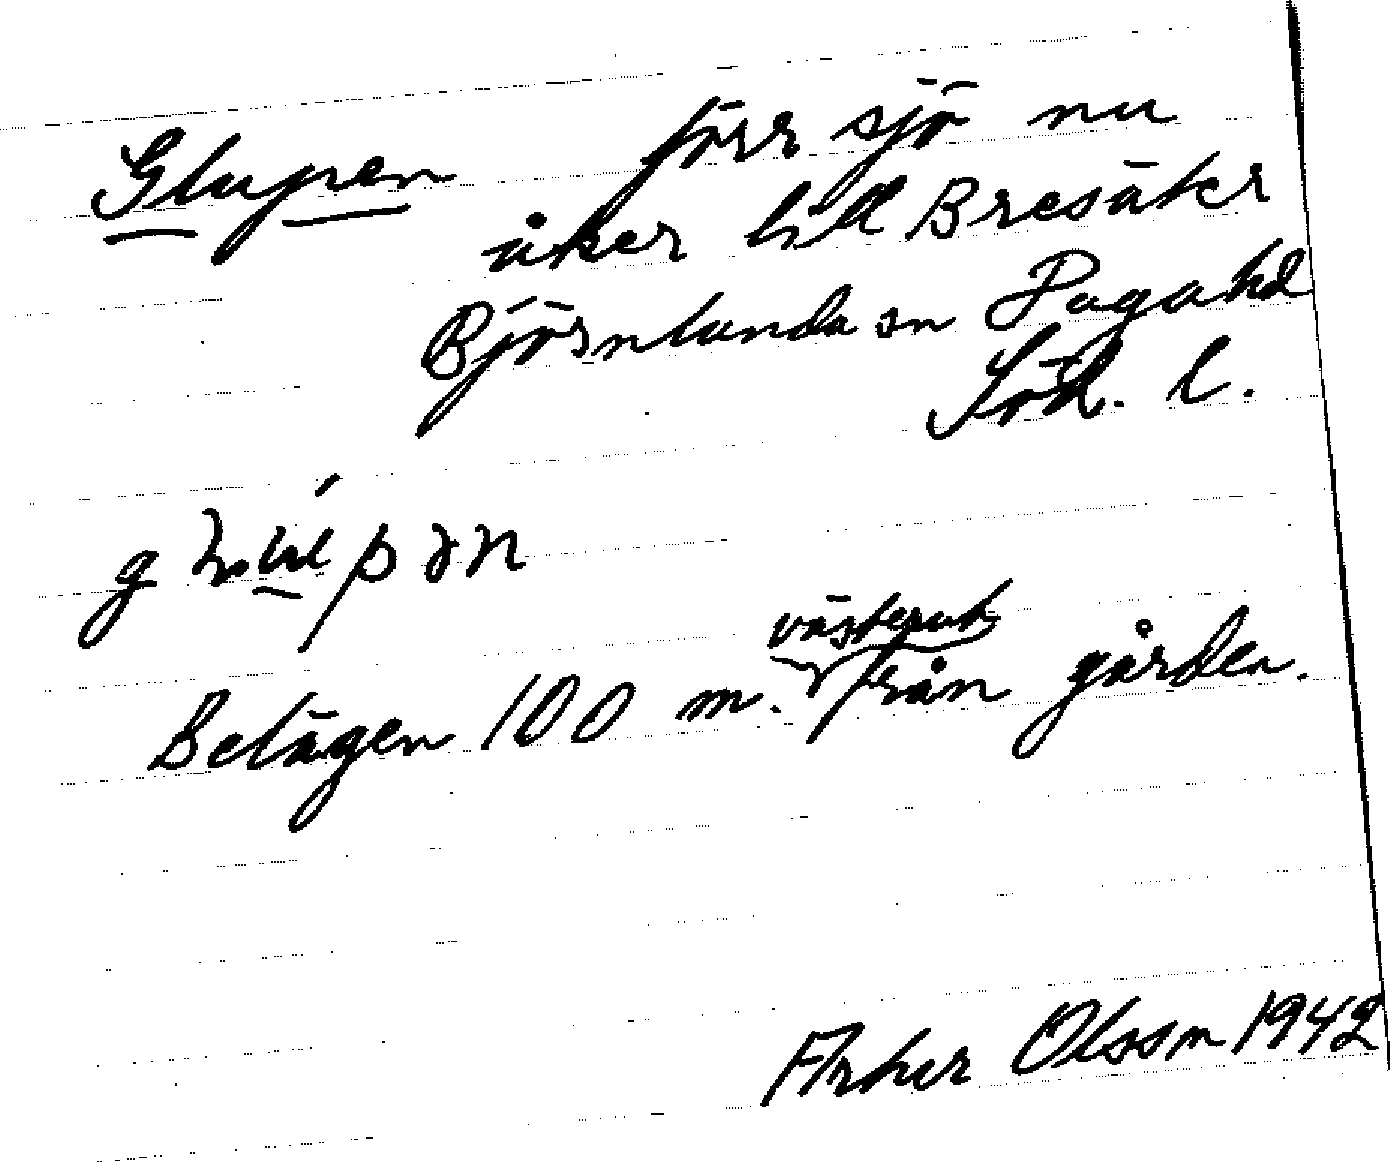 Glupen förr sjö nu
åker till Bresäkr
Björnlunda sn Daga hd
Söd. l.
Belägen 100 m. västerut från gården.
Olsson 1942